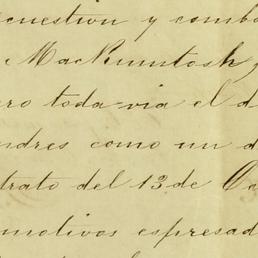 cuestion y comb
MacKuntosh y
ero toda-via el d
ndres como un d
trato del 13 de Oc
motivos espresad